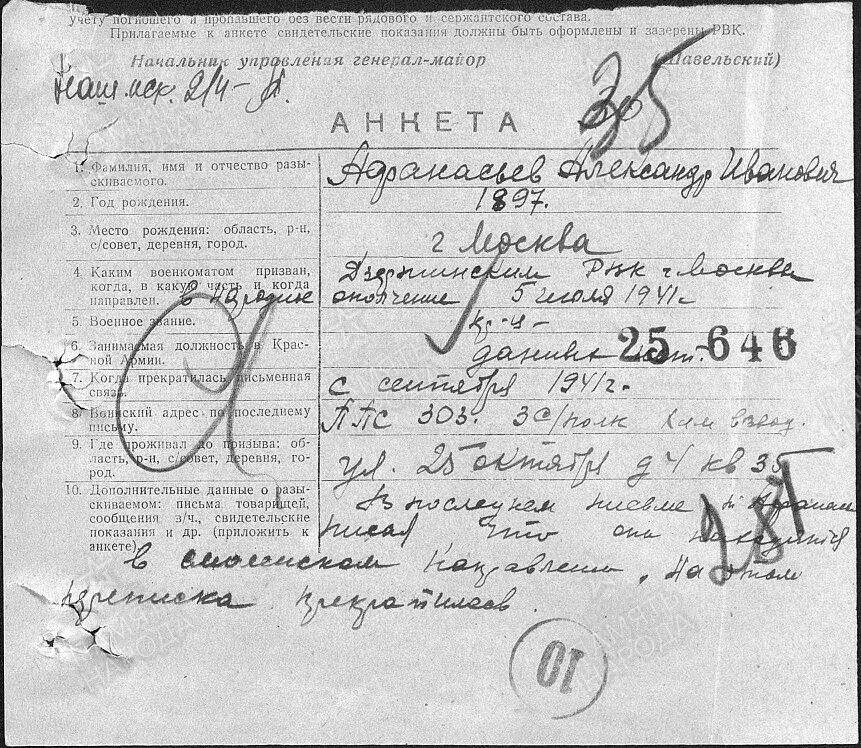 учету погибшего и пропавшего без вести рядового и сержантского состава.
Прилагаемые к анкете свидетельские показания должны быть оформлены и зазерены РВК.
Начальник управления генерал-майор (Шавельский)
2/4-
35
АНКЕТА
1. Фамилия, имя и отчество разыскиваемого.
Афранасьев Александр Иванович
2. Год рождения.
1897.
3. Место рождения: область, р-н, с/совет, деревня, город.
г Москва
4. Каким военкоматом призван, когда, в какую часть и когда направлен.
Дзержинским РВК г. Москва
в народное ополчение 5 июля 1941 г.
5. Военное звание.
кр-ц-
6. Занимаемая должность в Красной Армии.
25-646
7. Когда прекратилась письменная связь.
с сентября 1941 г.
8. Воинский адрес по последнему письму.
ППС 303. 3 с/полк Хим взвод.
9. Где проживал до призыва: область, р-н, с/совет, деревня, город.
ул. 25 октября д 4 кв 35
10. Дополнительные данные о разыскиваемом: письма товарищей, сообщения з/ч., свидетельские показания и др. (приложить к анкете)
В последнем письме
писал что он находится
в направлении. На этом
переписка прекратилась
10